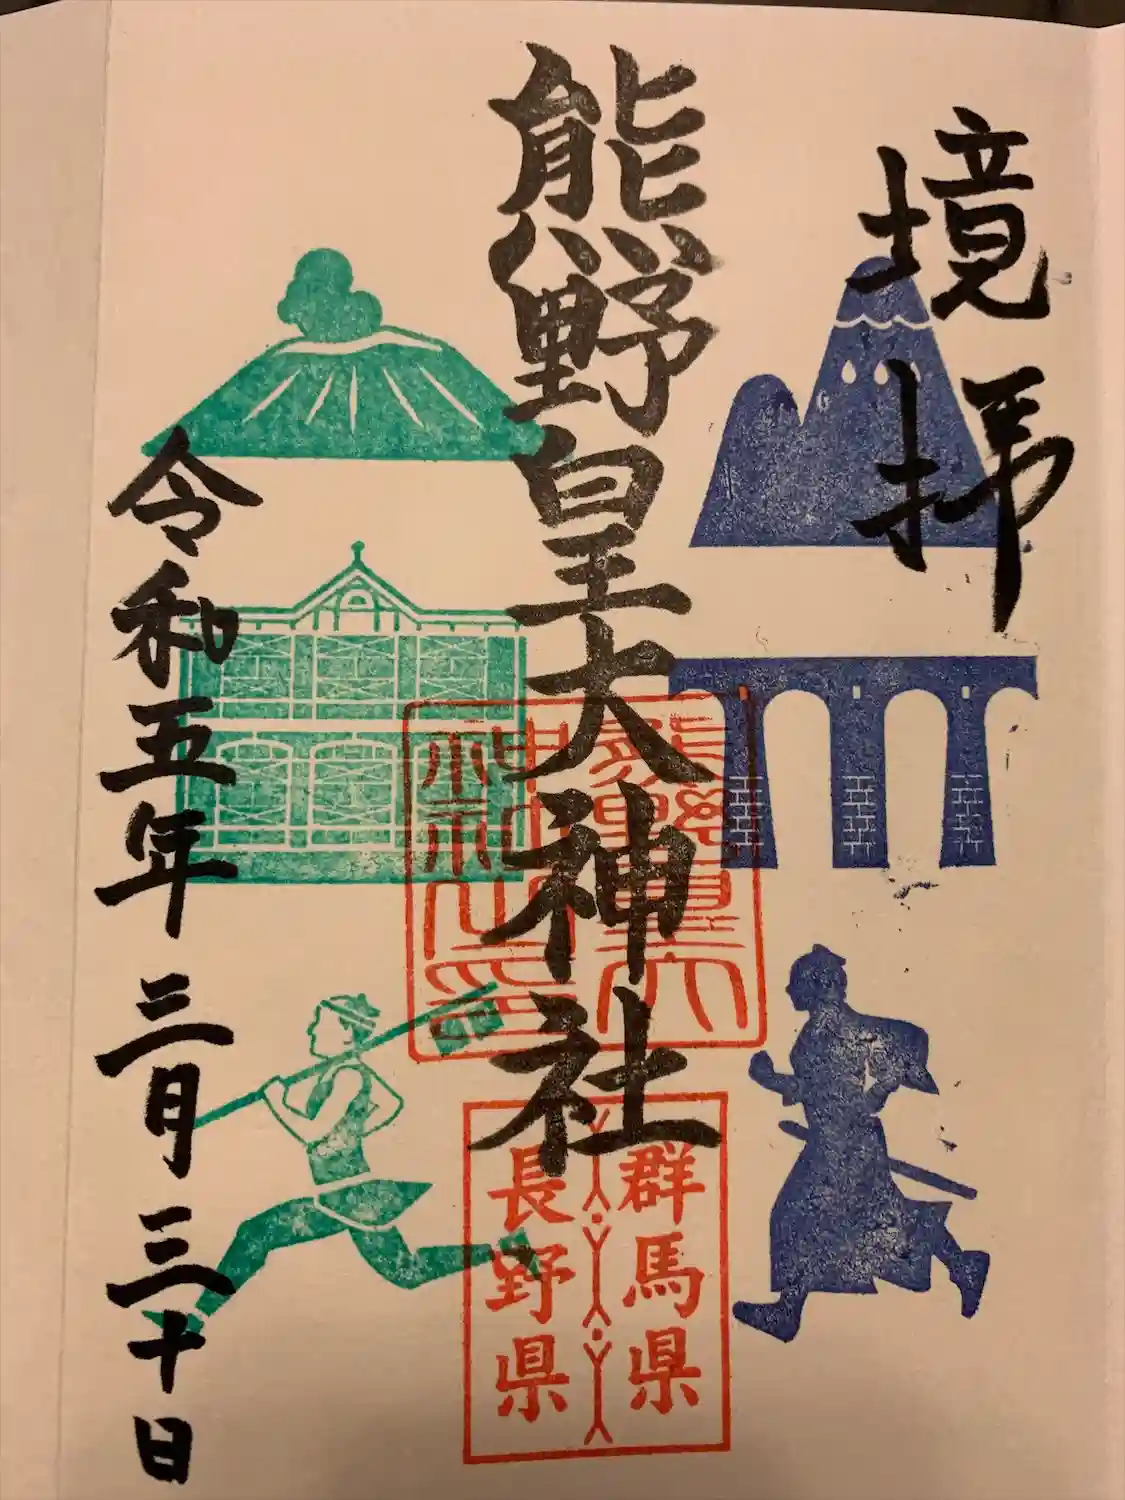 境拝
熊野皇大神社
群馬県
長野県
令和五年三月三十日